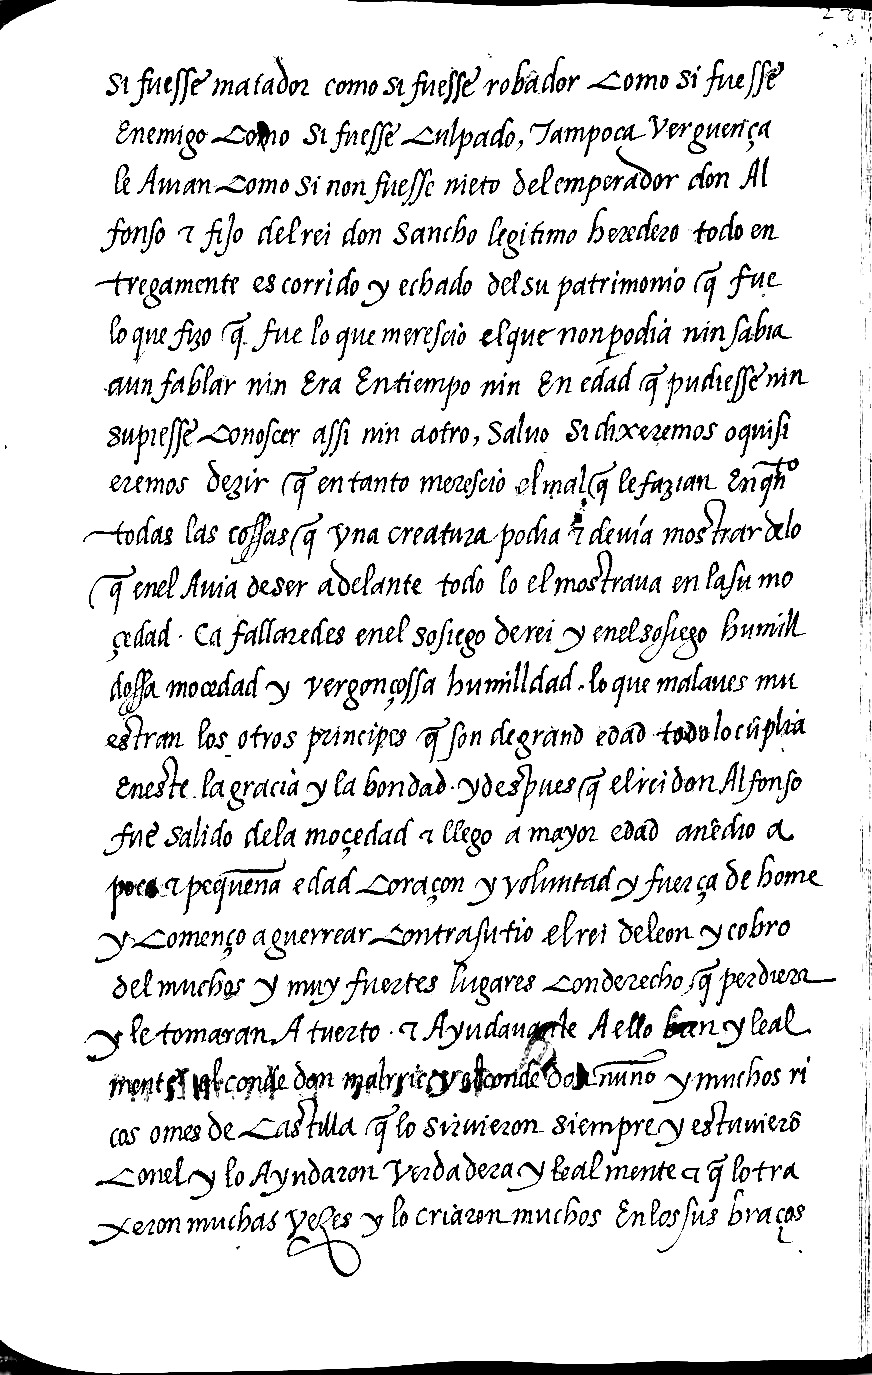 si fuesse matador como si fuesse robador Como si fuesse
Enemigo Como si fuesse Culpado, Tampoca Verguença
le Auian Como si non fuesse nieto del emperador don Al
fonso & fijo del rei don Sancho legitimo heredero todo en
tregamente es corrido y echado del su patrimonio q̃ fue
lo que fizo q̃ fue lo que merescio el que non podia nin sabia
aun fablar nin Era En tiempo nin En edad q̃ pudiesse nin
supiesse Conoscer assi nin a otro, Saluo Si dixeremos o quisi
eremos dezir q̃ en tanto merescio el mal q̃ le fazian En qñto
todas las cossas q̃ vna creatura podia & deuia mostrar de lo
q̃ en el Auia de ser adelante todo lo el mostraua en la su mo
çedad. Ca fallaredes en el sosiego de rei y en el sosiego humill
dossa mocedad y vergonçossa humilldad. lo que malaues mu
estran los otros principes q̃ son de grand edad todo lo cũplia
En este la gracia y la bondad. y despues q̃ el rei don Alfonso
fue salido de la moçedad & llego a mayor edad añedio a
poca & pequenña edad Coraçon y voluntad y fuerça de home
y Començo a guerrear Contra su tio el rei de leon y cobro
del muchos y muy fuertes lugares Con derecho q̃ perdiera
y le tomaran A tuerto. & Ayudauanle A ello bien y leal
mente el conde don malrric y el conde don nunño y muchos ri
cos omes de Castilla q̃ lo siruieron siempre y estuvierõ
Con el y lo Ayudaron Verdadera y leal mente & q̃ lo tra
xeron muchas vezes y lo criaron muchos En los sus braços